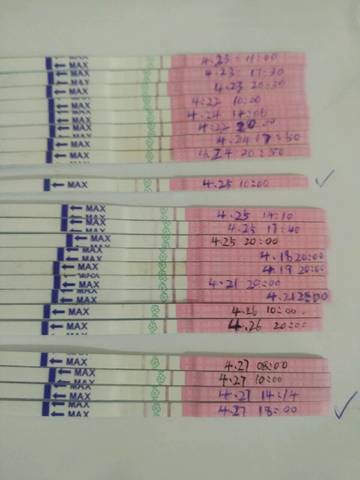 MAX 4.23 11:00
MAX 4.23 17:30
MAX 4.23 20:30
MAX 4.22 10:00
MAX 4.24 14:00
MAX 4.22 20
MAX 4.24 17:50
MAX 4.24 20:50
MAX 4.25 10:00
MAX 4.25 14:10
MAX 4.25 17:40
MAX 4.25 20:00
MAX 4.18 20:00
MAX 4.19 20:00
MAX 4.21 20:00
MAX 4.21
MAX 4.26 10:00
MAX 4.26 20:00
MAX 4.27 08:00
MAX 4.27 10:00
MAX 4.27 14:14
MAX 4.27 18:00